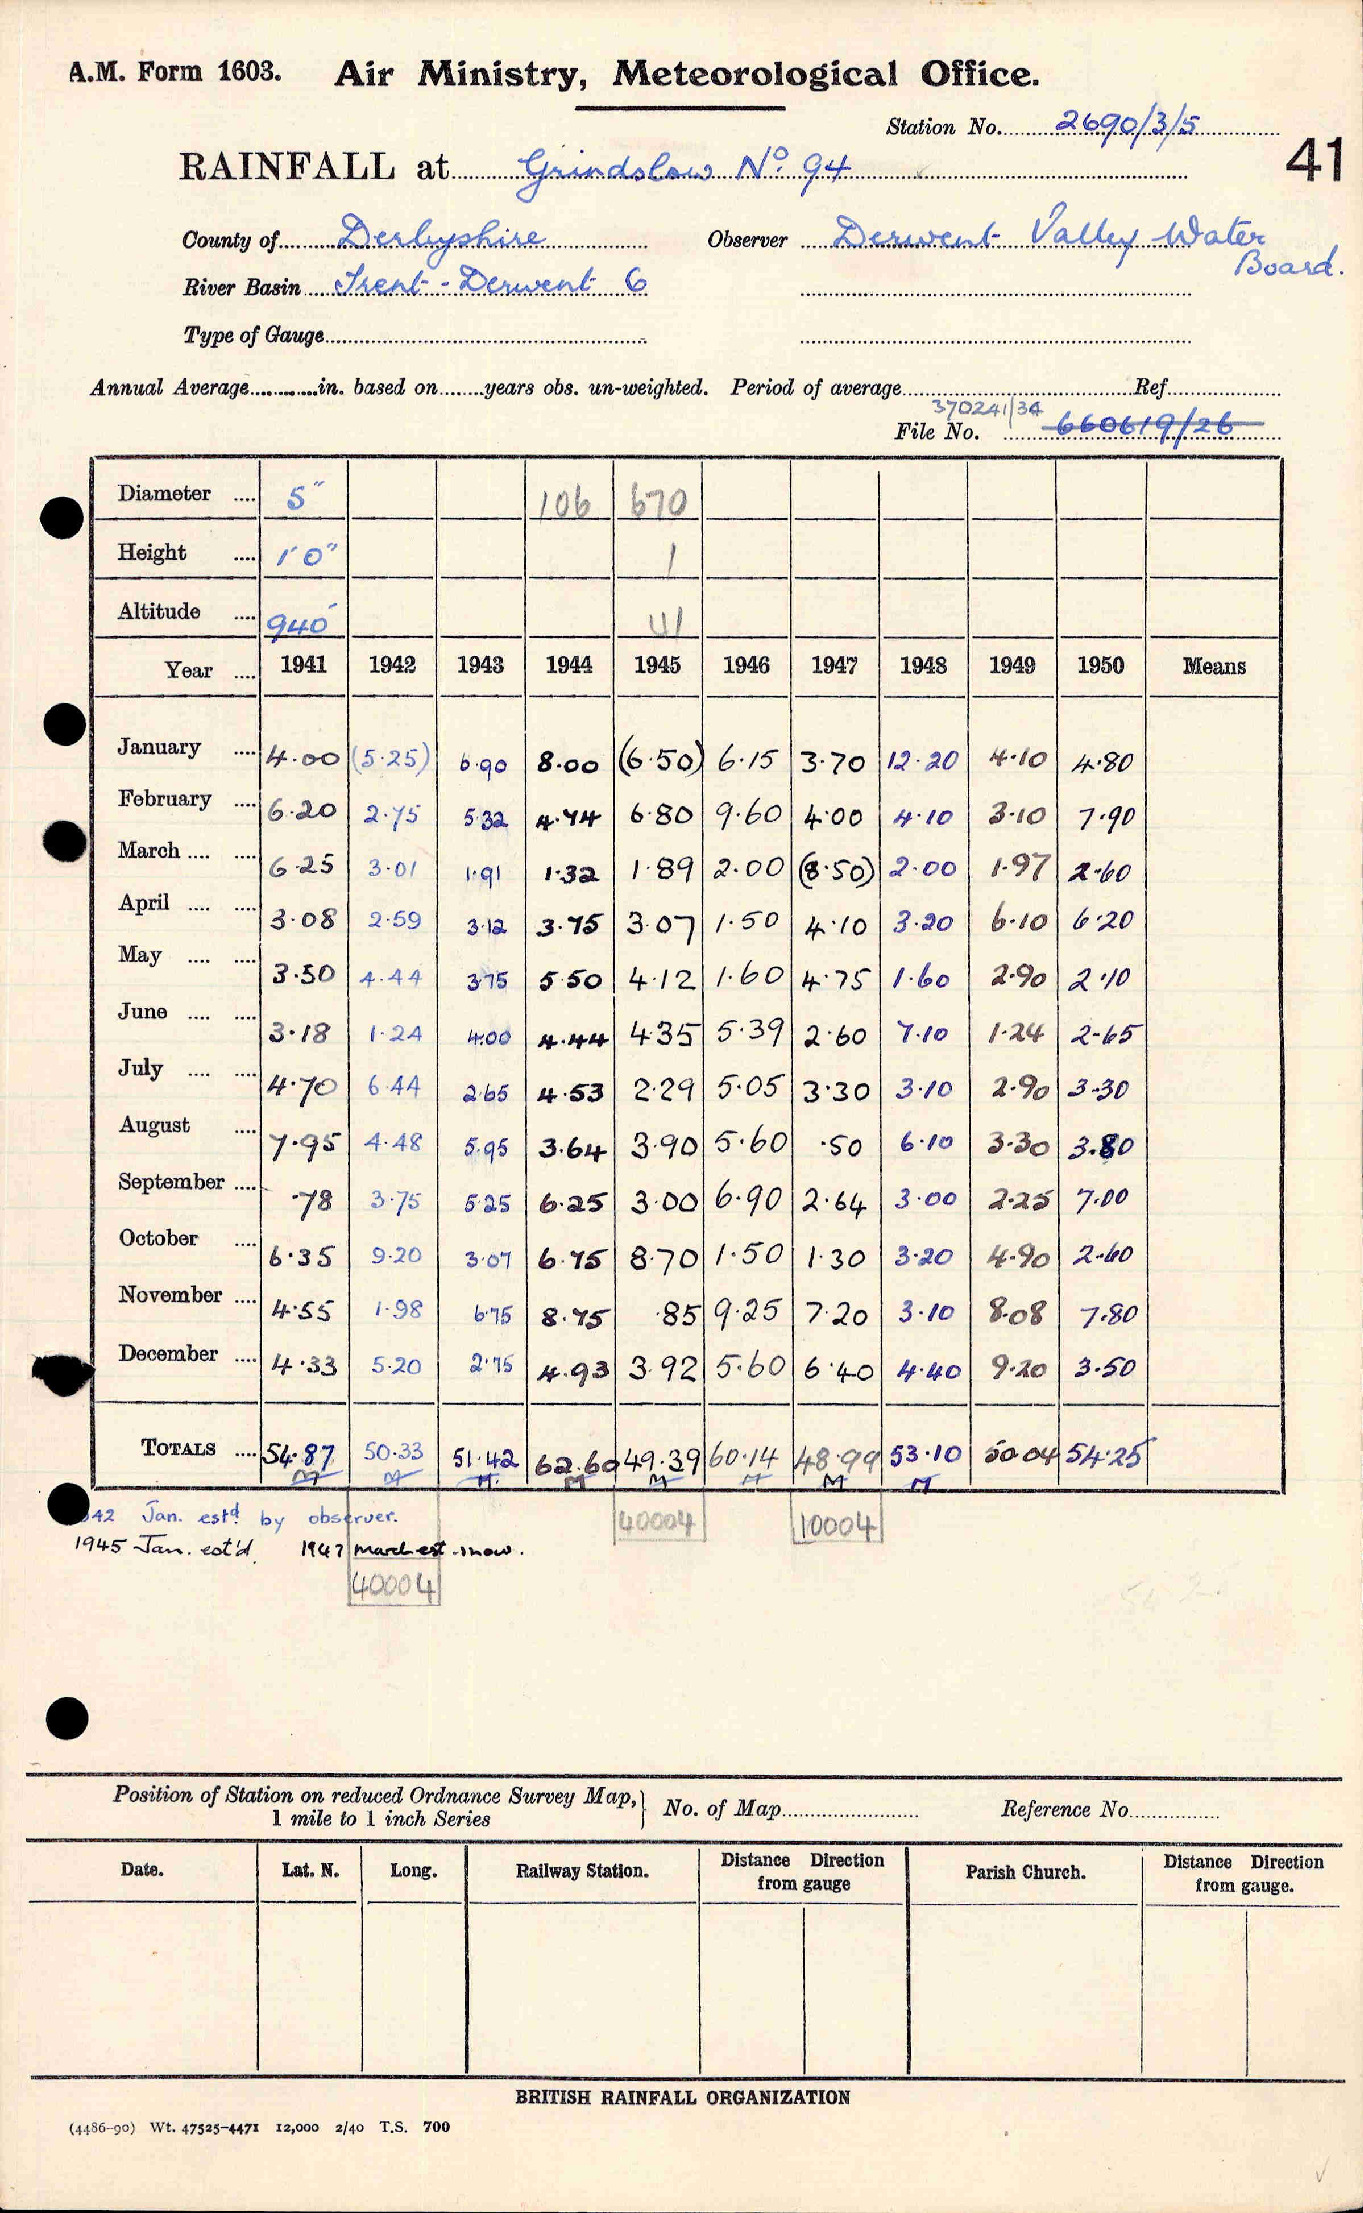 A.M. Form 1603. Air Ministry, Meteorological Office.
Station No. 2690/3/5
41
RAINFALL at Grindslow No. 94
County of Derbyshire Observer Derwent Valley Water
Board.
River Basin Trent - Derwent 6
Type of Gauge
Annual Average in. based on years obs. un-weighted. Period of average Ref.
370241/34
File No. 660619/26
Diameter .... 5" 106 670
Height .... 1'0" 1
Altitude .... 940' 41
Year .... 1941 1942 1943 1944 1945 1946 1947 1948 1949 1950 Means
January .... 4.00 (5.25) 6.90 8.00 (6.50) 6.15 3.70 12.20 4.10 4.80
February .... 6.20 2.75 5.32 4.74 6.80 9.60 4.00 4.10 3.10 7.90
March .... .... 6.25 3.01 1.91 1.32 1.89 2.00 (8.50) 2.00 1.97 2.60
April .... .... 3.08 2.59 3.12 3.75 3.07 1.50 4.10 3.20 6.10 6.20
May .... .... 3.50 4.44 3.75 5.50 4.12 1.60 4.75 1.60 2.90 2.10
June .... .... 3.18 1.24 4.00 4.44 4.35 5.39 2.60 7.10 1.24 2.65
July .... .... 4.70 6.44 2.65 4.53 2.29 5.05 3.30 3.10 2.90 3.30
August .... 7.95 4.48 5.95 3.64 3.90 5.60 .50 6.10 3.30 3.80
September .... .78 3.75 5.25 6.25 3.00 6.90 2.64 3.00 2.25 7.00
October .... 6.35 9.20 3.07 6.75 8.70 1.50 1.30 3.20 4.90 2.60
November .... 4.55 1.98 6.75 8.75 .85 9.25 7.20 3.10 8.08 7.80
December .... 4.33 5.20 2.75 4.93 3.92 5.60 6.40 4.40 9.20 3.50
TOTALS .... 54.87 50.33 51.42 62.60 49.39 60.14 48.99 53.10 50.04 54.25
M M M M M M M M
42 Jan. estd by observer. 40004 10004
1945 Jan. est'd. 1947 March est. snow.
40004
Position of Station on reduced Ordnance Survey Map,
1 mile to 1 inch Series
No. of Map Reference No.
Date. Lat. N. Long. Railway Station. Distance Direction from gauge Parish Church. Distance Direction from gauge.
BRITISH RAINFALL ORGANIZATION
(4486-90) Wt. 47525-4471 12,000 2/40 T.S. 700